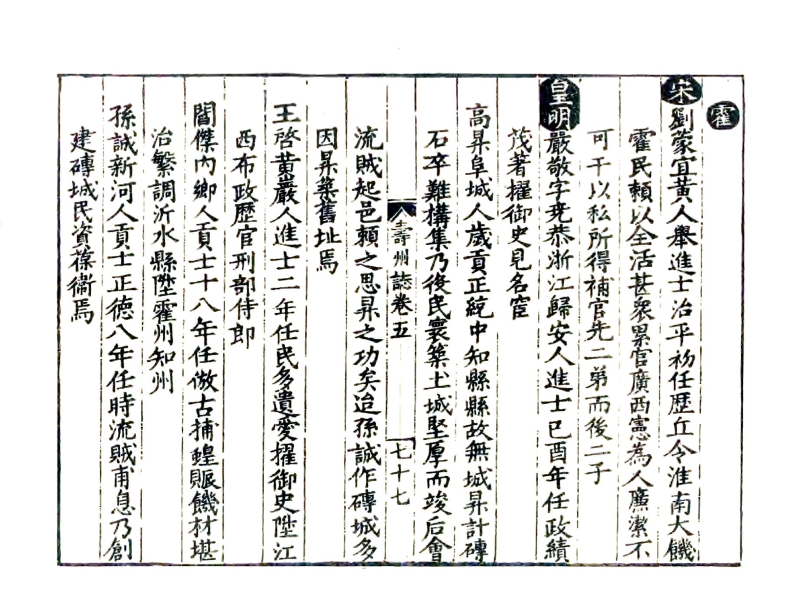 霍
宋劉蒙宜黃人舉進士治平初任歷丘令淮南大饑
霍民賴以全活甚衆累官廣西憲為人廉潔不
可干以私所得補官先二弟而後二子
皇明嚴敬字堯恭浙江歸安人進士己酉年任政績
茂著擢御史見名宦
高昇阜城人歲貢正統中知縣縣故無城昇計磚
石卒難構集乃役民寰築土城堅厚而竣后會
壽州誌卷五
七十七
流賊起邑賴之思昇之功矣迨孫誠作磚城多
因昇築舊址焉
王啓黃巖人進士二年任民多遺愛擢御史陞江
西布政歷官刑部侍郎
閻傑內鄉人貢士十八年任倣古捕蝗賑饑材堪
治繁調沂水縣陞霍州知州
孫誠新河人貢士正德八年任時流賊甫息乃創
建磚城民資葆衞焉